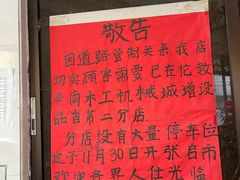 敬告
因道路管制关系,我店
切实顾客需要已在伦教
南木工机械城增设
品首第二分店
分店设有大量停车位
定于11月30日开张启市
欢迎各界人仕光临